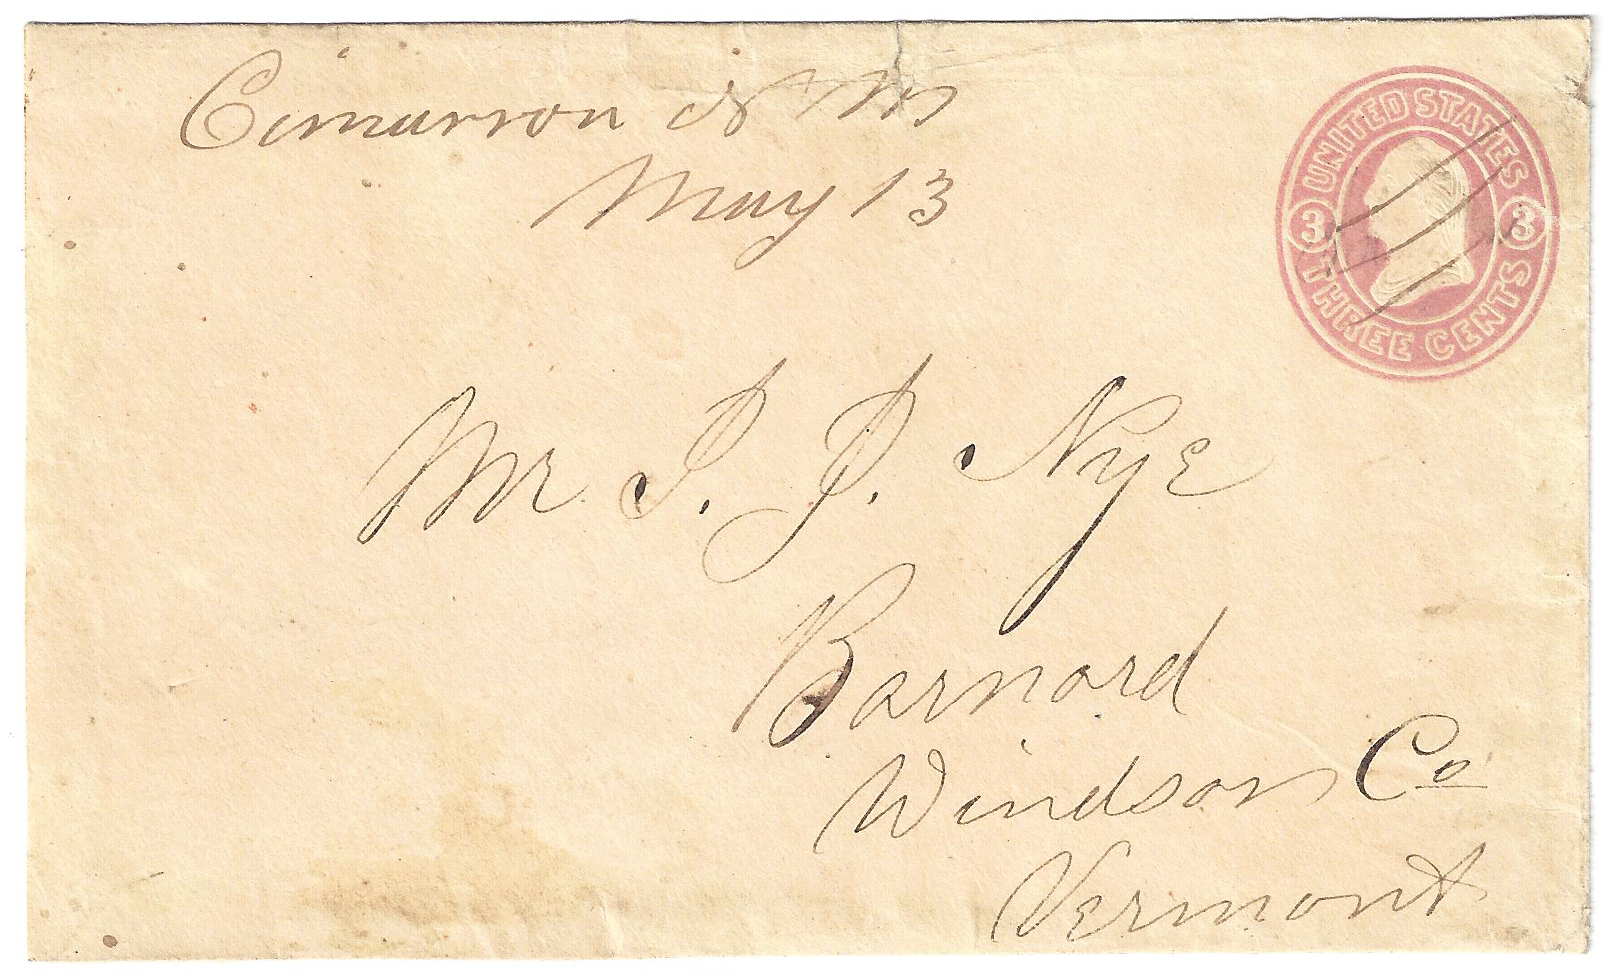 Cimarron N M
May 13
UNITED STATES
3 3
THREE CENTS
Mr I. J. Nye
Barnard
Windsor Co
Vermont